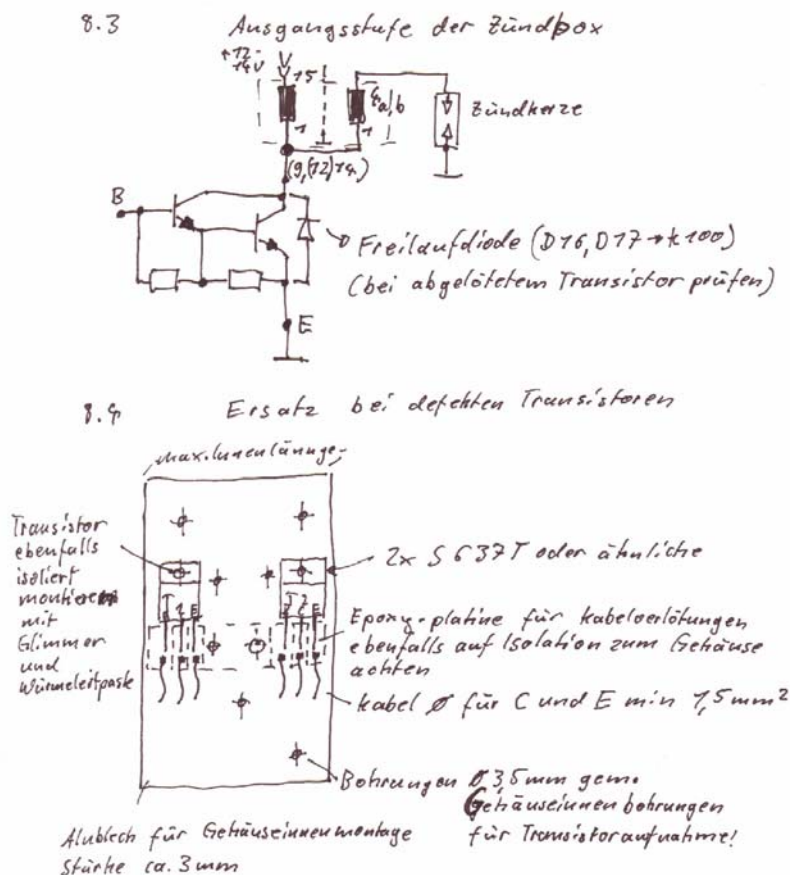 8.3 Ausgangsstufe der Zündbox
+12-
14V
15
4a/b
1
1
Zündkerze
(9,(12)14)
B
Freilaufdiode (D16, D17 → k100)
(bei abgelötetem Transistor prüfen)
E
8.4 Ersatz bei defekten Transistoren
max. Innenlännge
Transistor
ebenfalls
isoliert
montieren
mit
Glimmer
und
Wärmeleitpaste
2x S 637T oder ähnliche
T 1 E
T 2 E
Epoxy-platine für Kabelverlötungen
ebenfalls auf Isolation zum Gehäuse
achten
Kabel Ø für C und E min 1,5mm²
Bohrungen Ø 3,5mm gem.
Gehäuseinnenbohrungen
für Transistoraufnahme!
Alublech für Gehäuseinnenmontage
Stärke ca. 3mm